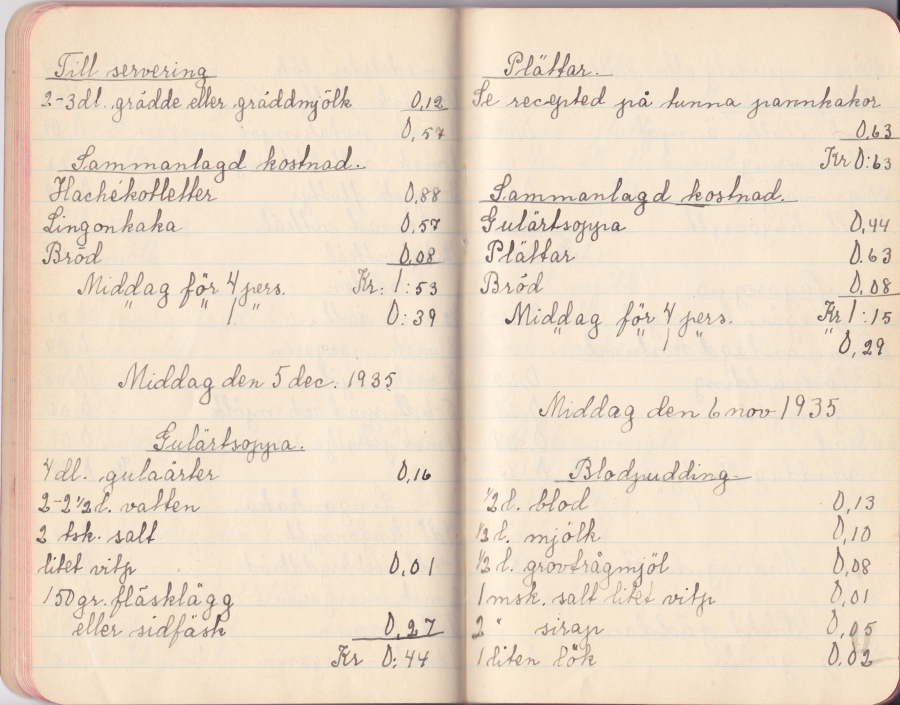 Till servering
2-3dl. grädde eller gräddmjölk 0,12
0,57
Sammanlagd kostnad.
Hachékotletter 0,88
Lingonkaka 0,57
Bröd 0,08
Middag för 4 pers. Kr: 1:53
" " 1 " 0:39
Middag den 5 dec. 1935
Gulärtsoppa.
4 dl. gulaärter 0,16
2-2½ l. vatten
2 tsk. salt
litet vitp 0,01
150 gr. fläsklägg
eller sidfäsk 0,27
Kr 0:44
Plättar.
Se recepted på tunna pannkakor
0,63
Kr 0:63
Sammanlagd kostnad.
Gulärtsoppa 0,44
Plättar 0.63
Bröd 0,08
Middag för 4 pers. Kr 1:15
" " 1 " " 0,29
Middag den 6 nov 1935
Blodpudding
½ l. blod 0,13
½ l. mjölk 0,10
½ l. grovtrågmjöl 0,08
1 msk. salt litet vitp 0,01
2 " sirap 0,05
1 liten lök 0,02